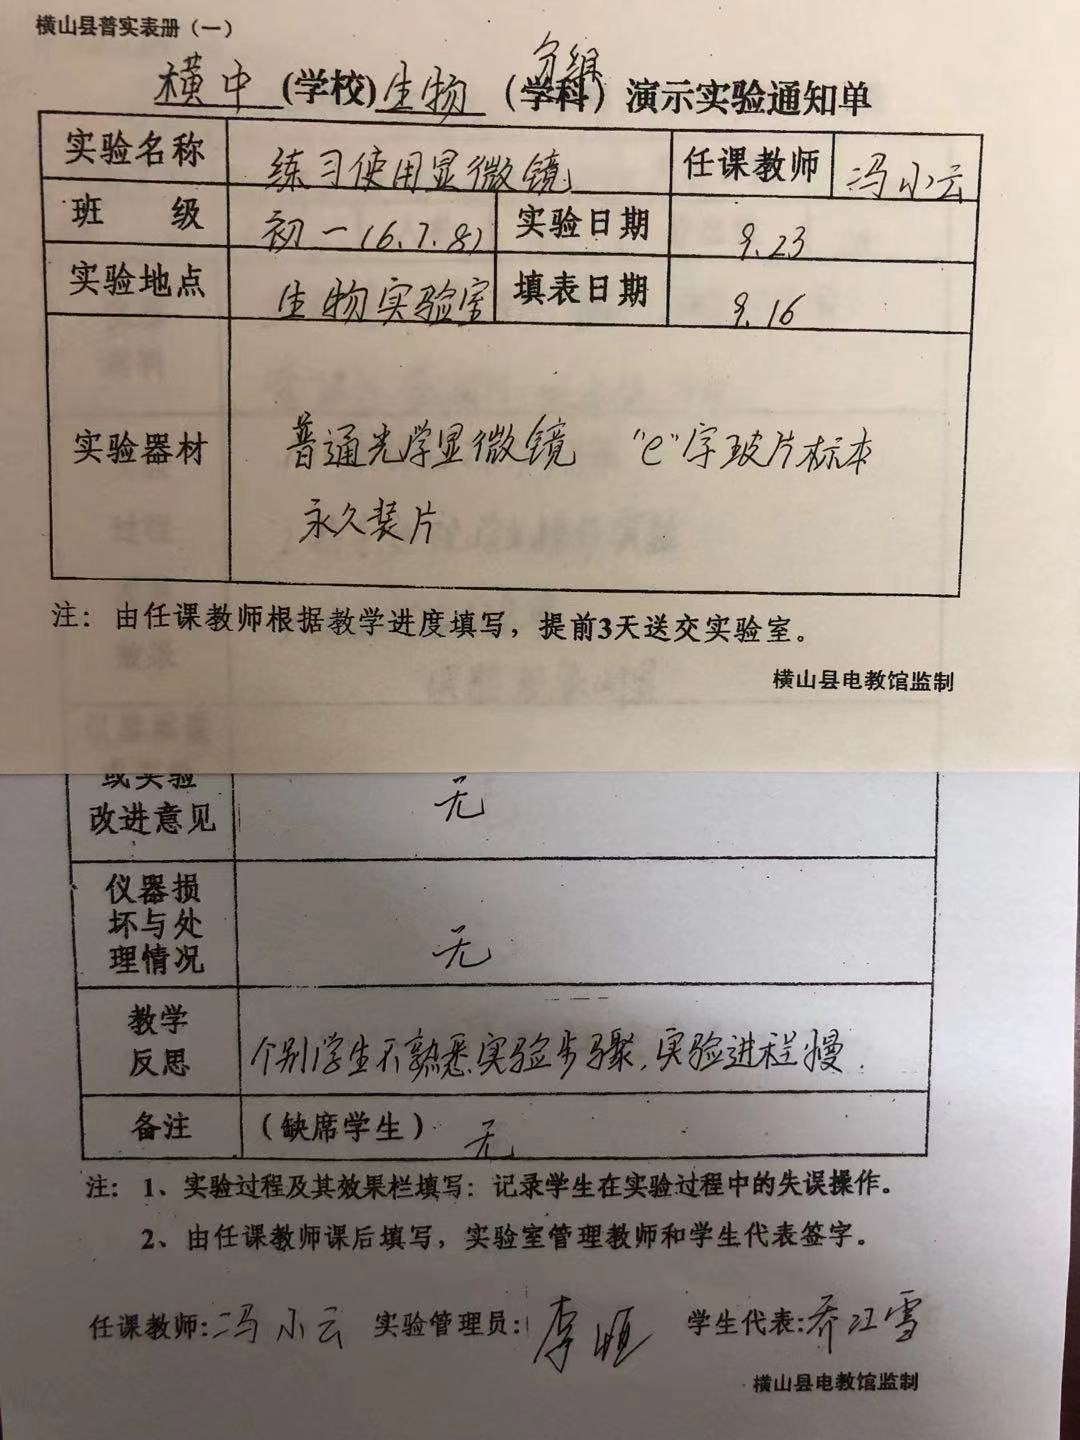 横山县普实表册（一）
分组
横中(学校)生物（学科）演示实验通知单
实验名称 练习使用显微镜 任课教师 冯小云
班 级 初一(6.7.8) 实验日期 9.23
实验地点 生物实验室 填表日期 9.16
实验器材 普通光学显微镜 "e"字玻片标本
永久装片
注：由任课教师根据教学进度填写，提前3天送交实验室。
横山县电教馆监制
或实验
改进意见 无
仪器损
坏与处
理情况 无
教学
反思 个别学生不熟悉实验步骤,实验进程慢.
备注 （缺席学生） 无
注：1、实验过程及其效果栏填写：记录学生在实验过程中的失误操作。
2、由任课教师课后填写，实验室管理教师和学生代表签字。
任课教师:冯小云 实验管理员:李恒 学生代表:乔江雪
横山县电教馆监制